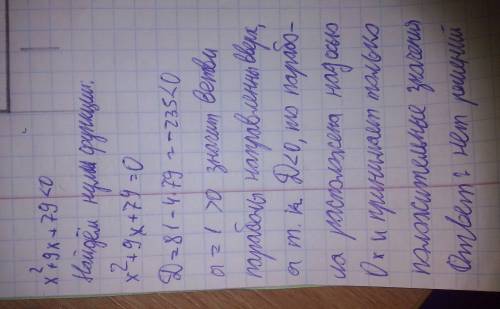 x² + 9x + 79 < 0
Найдём нули функции:
x² + 9x + 79 = 0
D = 81 - 4·79 = -235 < 0
a = 1 > 0 значит ветви
параболы направлены вверх,
а т.к. D < 0, то парабо-
ла расположена над осью
Ox и принимает только
положительные значения
Ответ: нет решений